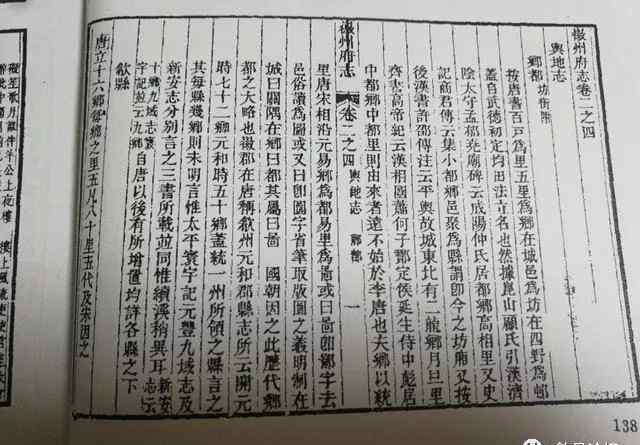 徽州府志卷二之四
輿地志
鄉都 坊街附
按唐書百戶爲里五里爲鄉在城邑爲坊在四野爲邨
蓋自武德初定均田法立名也然據崑山顧氏引漢濟
陰太守孟郁堯廟碑云成陽仲氏居都鄉高相里又史
記商君傳云集小都鄉邑聚爲縣謂卽今之坊廂又按
後漢書許邵傳注云平輿故城東北有二龍鄉月旦里
齊書高帝紀云漢相國蕭何子酇定侯延生侍中彪居
徽州府志
卷二之四 輿地志 鄉都
一
中都鄉中都里則由來者遠不始於李唐也夫鄉以統
里唐宋相沿元易鄉爲都易里爲啚或曰啚卽鄙字去
邑俗讀爲圖或又曰卽圖字省筆取版圖之義明制在
城曰關隅在鄉曰都其屬曰啚 國朝因之此歷代鄉
都之大略也徽郡在唐稱歙州元和郡縣志所云開元
時七十二鄉元和時五十鄉蓋統一州所領之縣言之
其每縣幾鄉則未明言惟太平寰宇記元豐九域志及
新安志分別言之三書所載並同惟績溪稍異耳 新安志云
十鄉九域志寰
宇記並云九鄉 自唐以後有所增置均詳各縣之下
歙縣
唐立十六鄉每鄉之里五凡八十里五代及宋因之
138